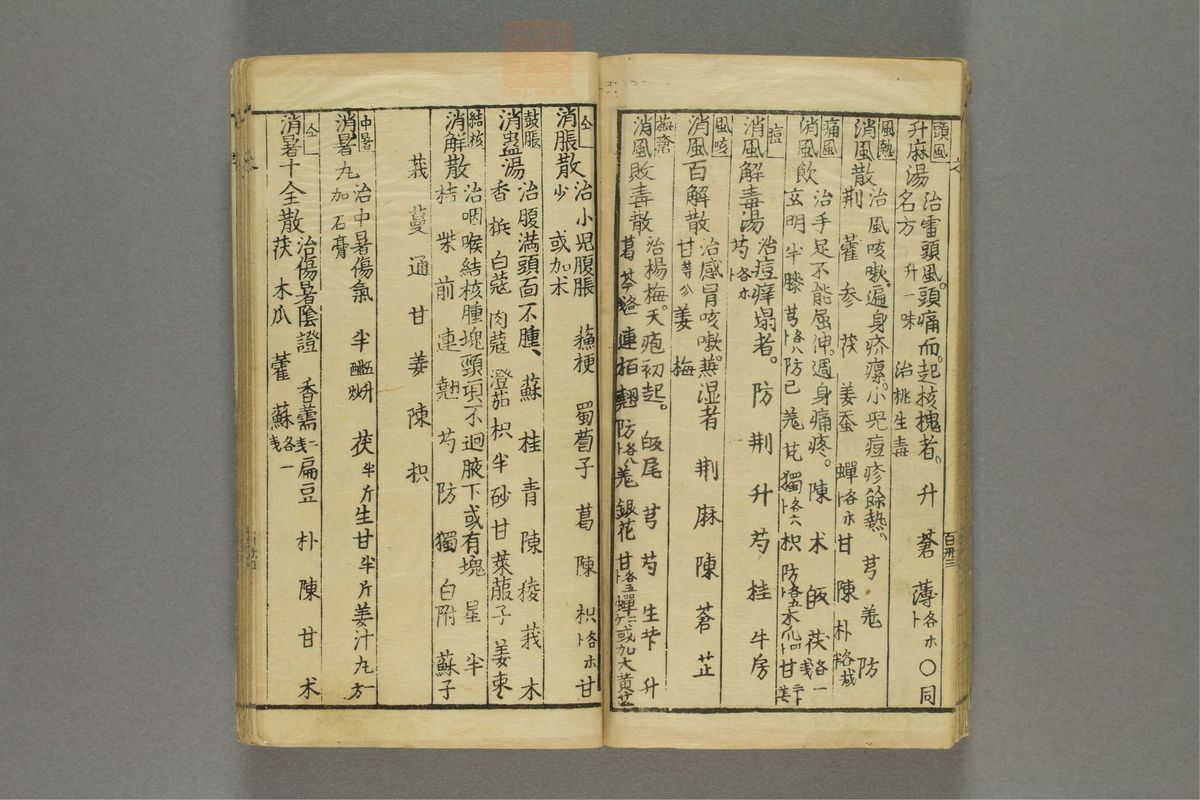 頭風
升麻湯 治雷頭風。頭痛而。起核槐者。 升 蒼 薄 各ホ卜 ○同
名方 升一味 治桃生毒
風熱
消風散 治風咳嗽。遍身疥癩。小児痘疹餘熱。 芎 羌 防
荆 藿 参 茯 姜蚕 蟬 各ホ卜 甘 陳 朴
痛風
消風飲 治手足不能屈伸。週身痛疼。 陳 术 皈 茯 各一戔
玄明 半 膝 芎 各八卜 防已 羌 芃 獨 各六卜 枳 防 各五卜 木爪 四卜 甘
痘
消風解毒湯 治痘痒塌者。 防 荆 升 芍 桂 牛房
芍 各ホ卜
風咳
消風百解散 治感冒咳嗽。𤍠湿者 荆 麻 陳 蒼 芷
甘 等分 姜 梅
梅瘡
消風敗毒散 治楊梅。天疱初起。 皈尾 芎 芍 生芐 升
葛 芩 連 栢 翹 防 各八卜 羌 銀花 甘 各五卜 蟬 或加大黄芒
百卅三
仝
消脹散 治小児腹脹 蘓梗 蜀葡子 葛 陳 枳 各ホ卜 甘
少 或加术
鼓脹
消蠱湯 治腹満頭面不腫、 蘇 桂 青 陳 稜 莪 木
香 梹 白蔻 肉蔻 澄茄 枳 半 砂 甘 莱菔子 姜 枣
結核
消解散 治咽喉結核腫塊頸項不迴腋下或有塊 星 半
桔 柴 前 連 翹 芍 防 獨 白附 蘇子
莪 蔓 通 甘 姜 陳 枳
中暑
消暑丸 治中暑傷氣 半 茯 半斤 生甘 半斤 姜汁丸 一方
加石膏
仝
消暑十全散 治傷暑陰證 香薷 二戔 扁豆 朴 陳 甘 术
茯 木瓜 藿 蘇 各一戔